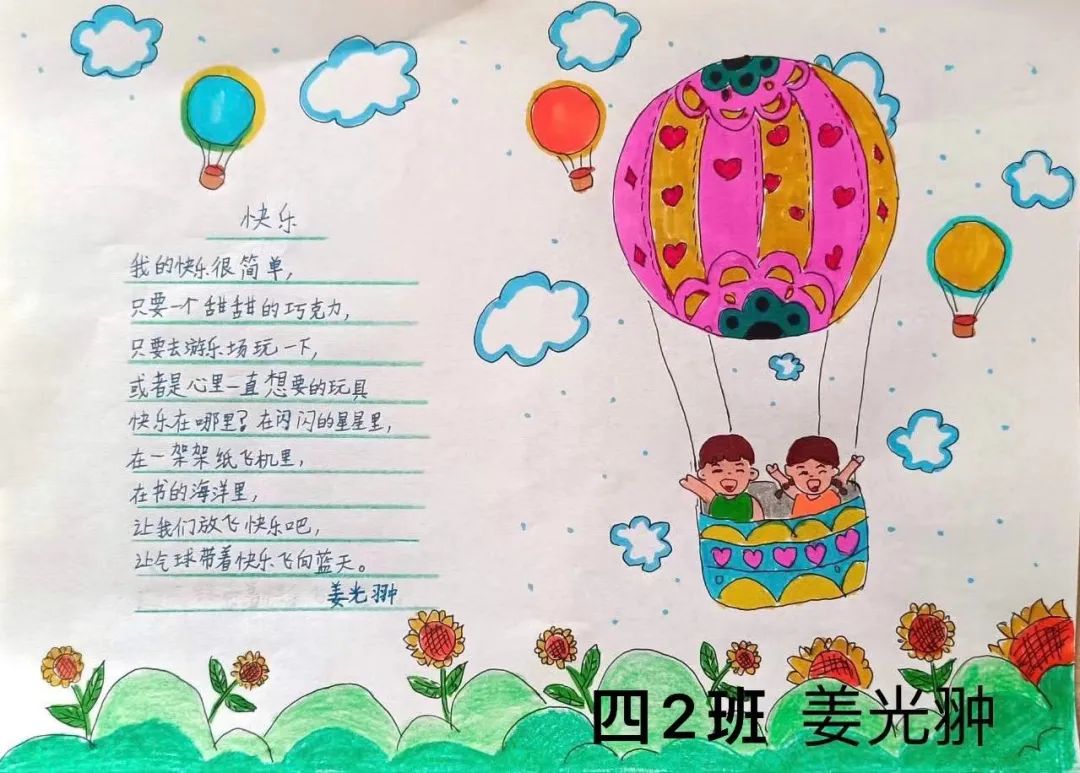 快乐
我的快乐很简单，
只要一个甜甜的巧克力，
只要去游乐场玩一下，
或者是心里一直想要的玩具
快乐在哪里？在闪闪的星星里，
在一架架纸飞机里，
在书的海洋里，
让我们放飞快乐吧，
让气球带着快乐飞向蓝天。
姜光翀
四2班 姜光翀